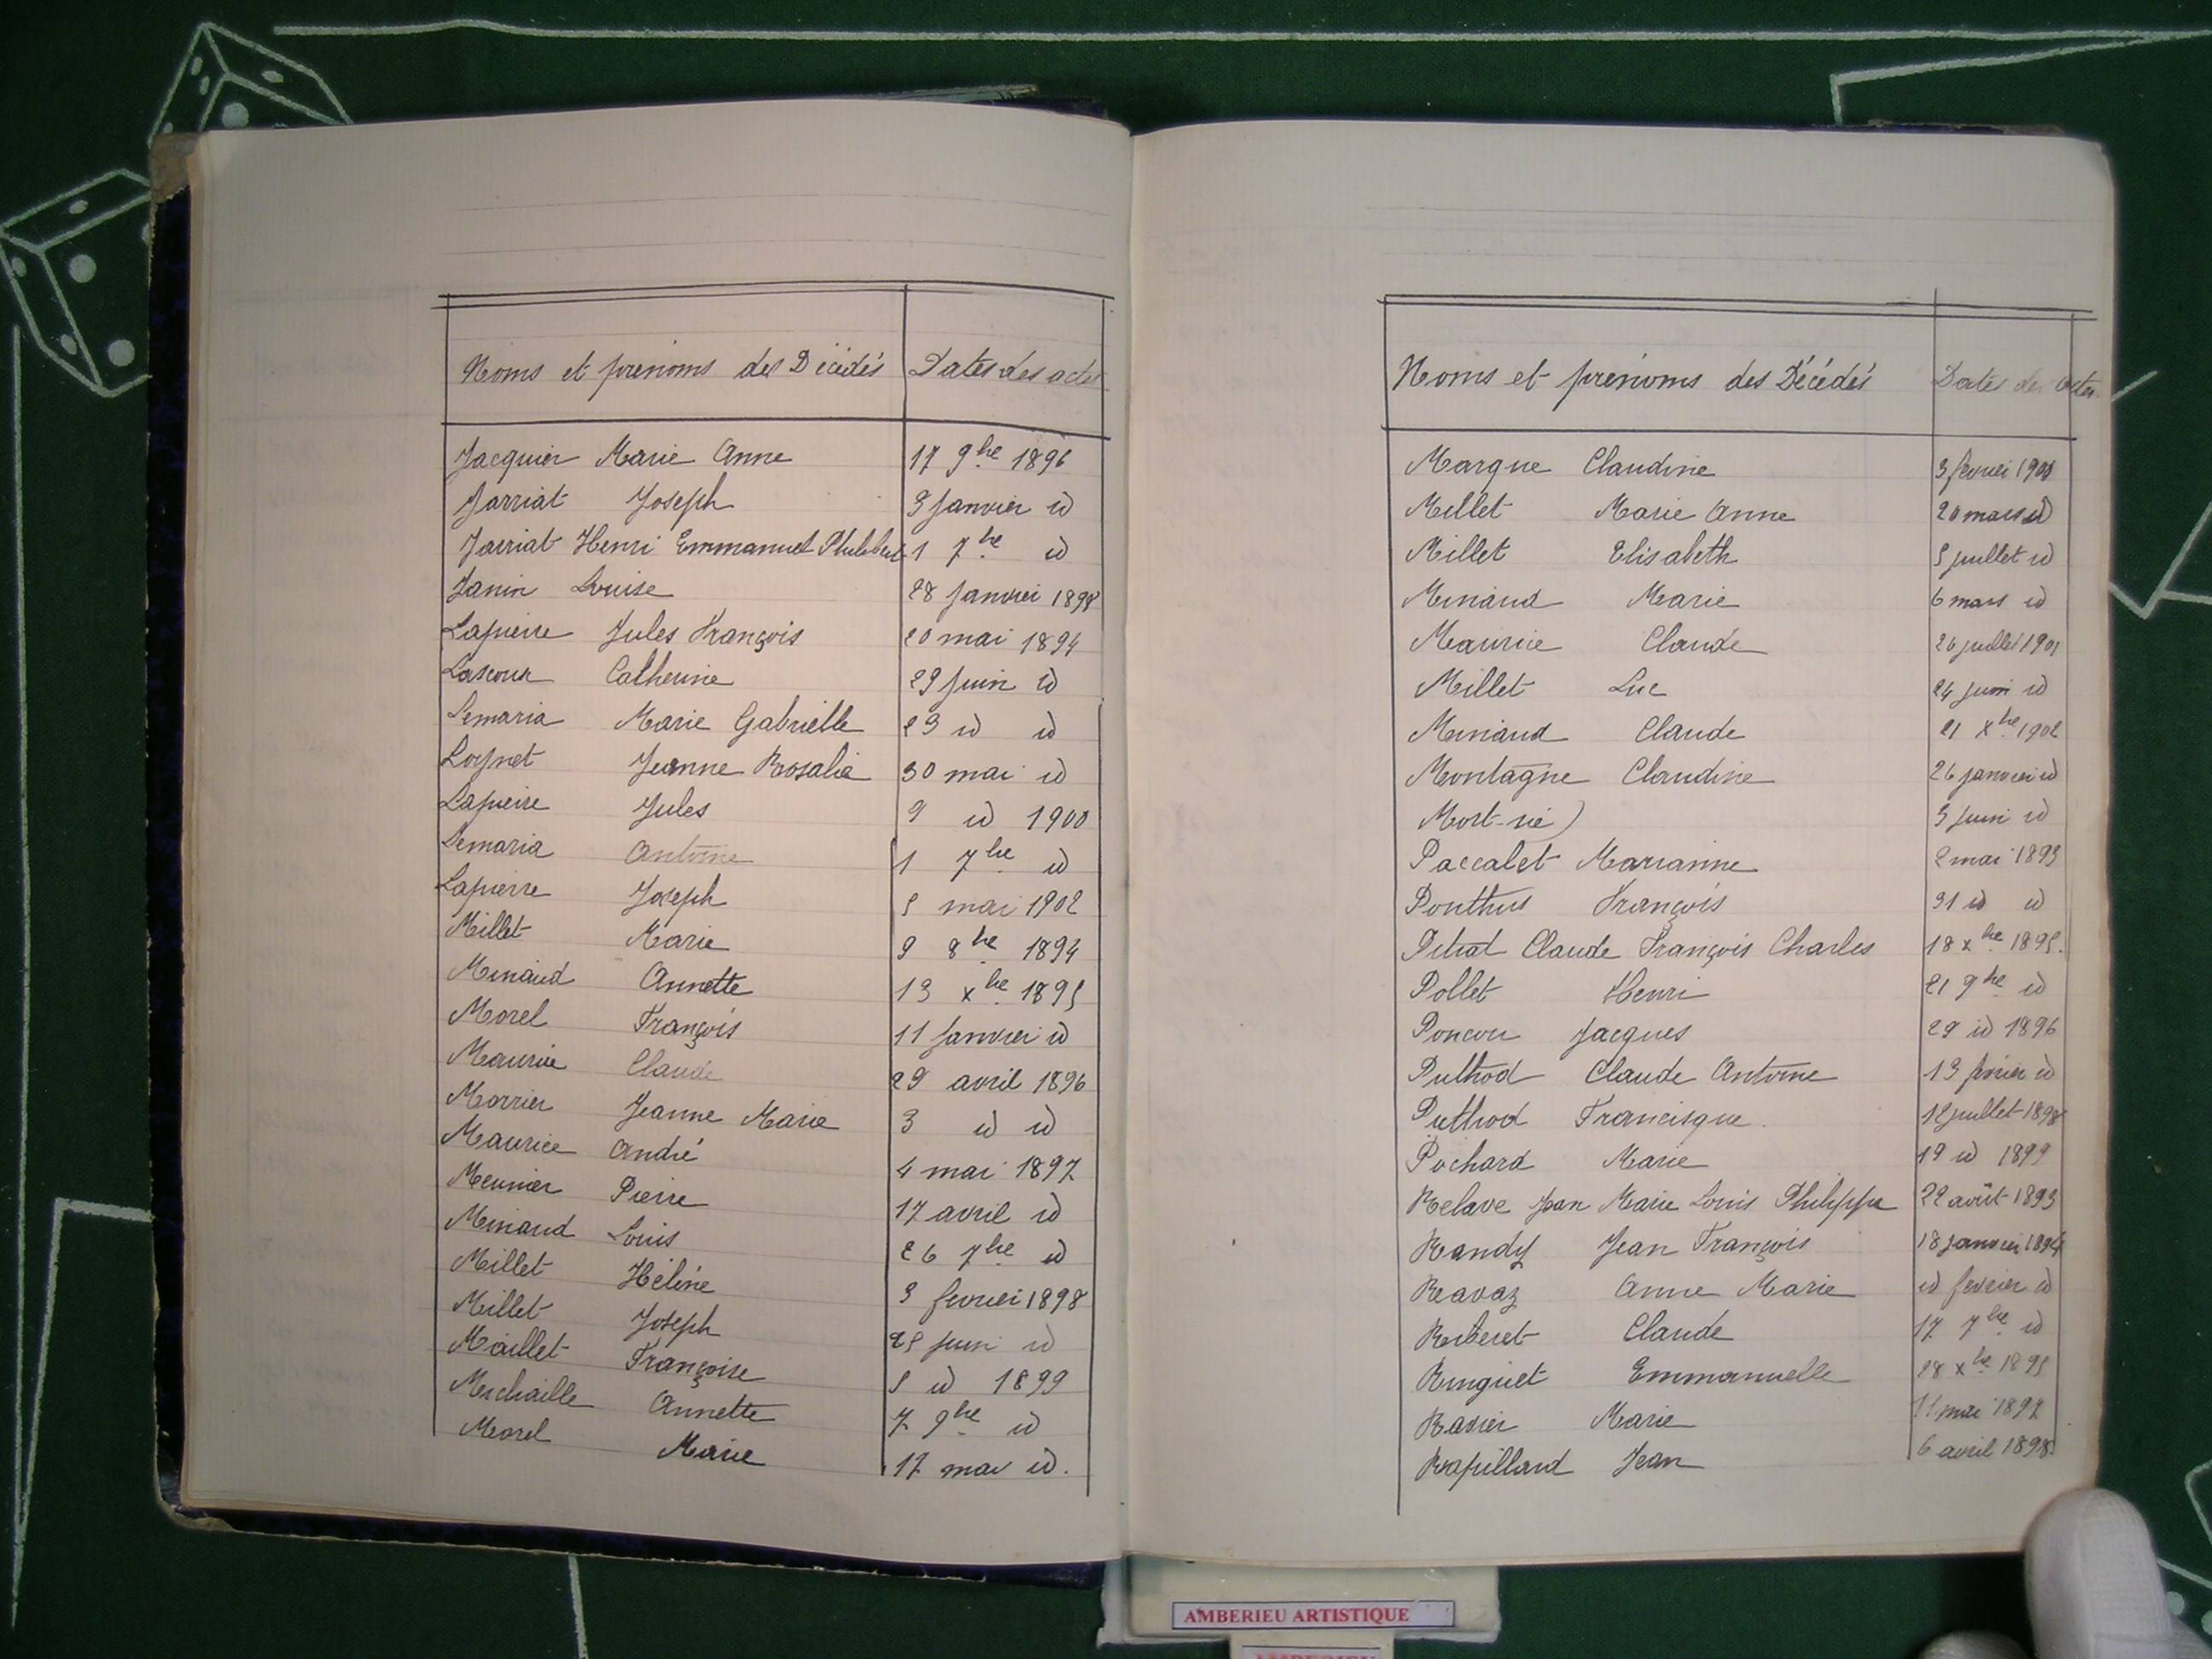 Noms et prénoms des Décédés Dates des actes
Jacquier Marie Anne 17 9bre 1896
Jarriat Joseph 3 Janvier id
Jarriat Henri Emmanuel Philibert 1 7bre id
Janin Louise 28 Janvier 1898
Lapierre Jules François 20 mai 1894
Lascour Catherine 29 Juin id
Lemaria Marie Gabrielle 23 id id
Loynet Jeanne Rosalie 30 mai id
Lapierre Jules 9 id 1900
Lemaria Antoine 1 7bre id
Lapierre Joseph 5 mai 1902
Millet Marie 9 8bre 1894
Minaud Annette 13 xbre 1895
Morel François 11 Janvier id
Maurice Claude 29 avril 1896
Morrier Jeanne Marie 3 id id
Maurice André 4 mai 1897
Meunier Pierre 17 avril id
Minaud Louis 26 7bre id
Millet Hélène 3 fevrier 1898
Millet Joseph 25 juin id
Maillet Françoise 5 id 1899
Merchaille Annette 7 9bre id
Morel Marie 17 mai id.
Noms et prénoms des Décédés Dates des actes
Margue Claudine 3 fevrier
Millet Marie Anne 20 mars id
Millet Elisabeth 5 juillet id
Minaud Marie 6 mars id
Maurice Claude 26 juillet 1901
Millet Luc 24 juin id
Minaud Claude 21 xbre 1902
Montagne Claudine 26 janvier id
Mort-né) 3 Juin id
Paccalet Marianne 2 mai 1893
Ponthus François 31 id id
Pitrat Claude François Charles 18 xbre 1895.
Pollet Henri 21 9bre id
Poncon Jacques 29 id 1896
Puthod Claude Antoine 13 février id
Puthod Francisque 12 juillet 1898
Pochard Marie 19 id 1899
Relave Jean Marie Louis Philippe 22 août 1893
Randy Jean François 18 janvier 1894
Ravaz Anne Marie id fevrier id
Reberet Claude 17 7bre id
Ringuet Emmanuelle 28 xbre 1895
Ravier Marie 11 mai 1897
Rapilland Jean 6 avril 1898
AMBERIEU ARTISTIQUE